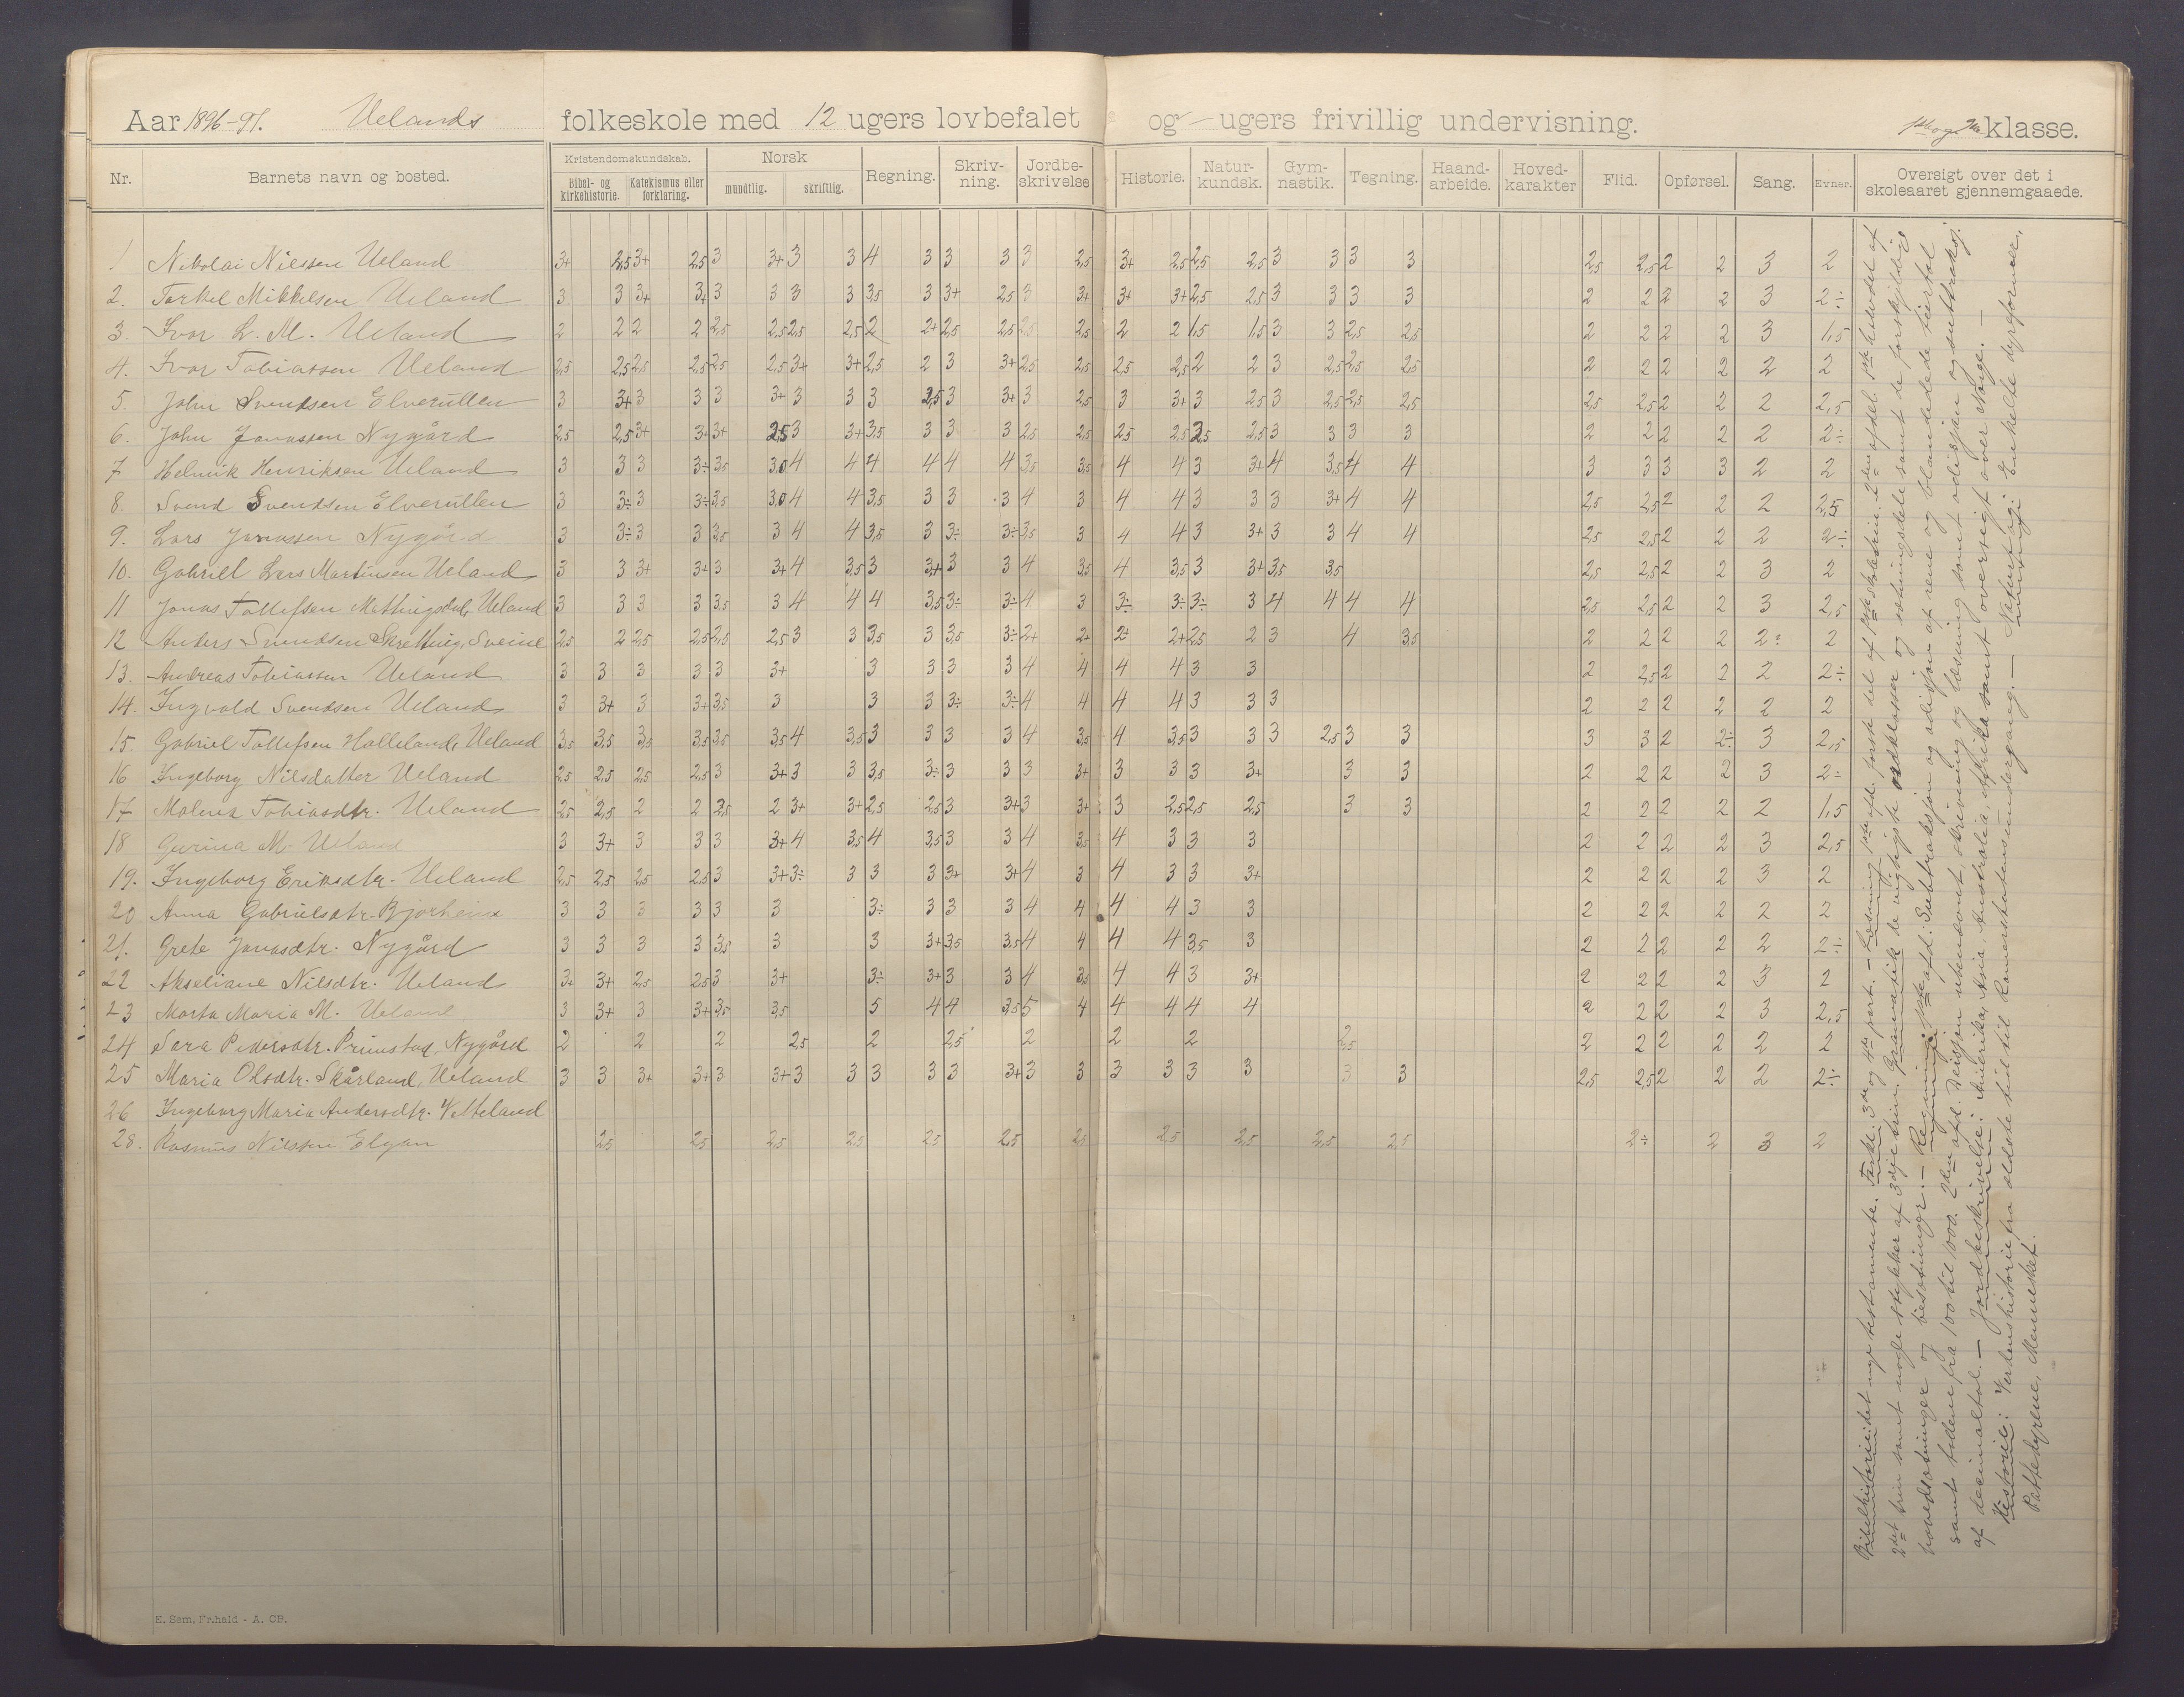 Aar 1896-97. Uelands folkeskole med 12 ugers lovbefalet og - ugers frivillig undervisning. 1ste og 2den klasse.
Nr. Barnets navn og bosted. Kristendomskundskab. Bibel- og kirkehistorie. Katekismus eller forklaring. Norsk mundtlig. skriftlig. Regning. Skriv-ning. Jordbe-skrivelse Historie. Natur-kundsk. Gym-nastik. Tegning. Haand-arbeide. Hoved-karakter Flid. Opførsel. Sang. Evner. Oversigt over det i skoleaaret gjennemgaaede.
1 Nikolai Nilssen Ueland 3+ 2,5 3+ 2,5 3 3+ 3 3 4 3 3 3 3 2,5 3+ 2,5 2,5 2,5 3 3 3 3 2,5 2,5 2 2 3 2
2. Torkel Mikkelsen Ueland 3 3 3+ 3+ 3 3 3 3 3,5 3 3+ 2,5 3 3+ 3+ 3+ 2,5 2,5 3 3 3 3 2 2 2 2 3 2÷
3. Ivar L. M. Ueland 2 2 2 2 2,5 2,5 2,5 2,5 2 2+ 2,5 2,5 2,5 2,5 2 2 1,5 1,5 3 3 2,5 2,5 2 2 2 2 3 1,5
4. Ivar Tobiassen Ueland 2,5 2,5 2,5 2,5 2,5 2,5 3+ 3+ 2,5 2 3 3+ 2,5 2,5 2,5 2,5 2 2 3 2,5 2,5 2,5 2 2 2 2 2 2
5. John Svendsen Elverullen 3 3+ 3 3 3 3+ 3 3 3 2,5 3 3+ 3 2,5 3 3+ 3 2,5 3 2,5 2,5 2,5 2,5 2,5 2 2 2 2,5
6. John Jonassen Nygård 2,5 2,5 3+ 3+ 3+ 2,5 3 3+ 3,5 3 3 3 2,5 2,5 2,5 2,5 2,5 2,5 3 3 3 3 2 2 2 2 2 2÷
7 Helmik Henriksen Ueland 3 3 3 3÷ 3,5 3,0 4 4 4 4 4 4 3,5 3,5 4 4 3 3+ 4 3,5 4 4 3 3 3 3 2 2
8. Svend Svendsen Elverullen 3 3÷ 3 3÷ 3,5 3,0 4 4 3,5 3 3 3 4 3 4 4 3 3 3 3+ 4 4 2,5 2,5 2 2 2 2,5
9. Lars Jonassen Nygård 3 3÷ 3 3 3,5 3 4 4 3,5 3 3÷ 3÷ 3,5 3 4 4 3 3+ 3 3 4 4 2,5 2,5 2 2 2 2÷
10. Gabriel Lars Martinsen Ueland 3 3 3+ 3+ 3 3+ 4 3,5 3 3+ 3 3 4 3,5 4 3,5 3 3+ 3,5 3,5 2,5 2,5 2 2 3 2
11 Jonas Tollefsen Mathingsdal, Ueland 3 3 3 3 3,5 3 4 4 4 3,5 3÷ 3÷ 4 3 3÷ 3÷ 3÷ 3 4 4 4 4 2,5 2,5 2 2 3 2,5
12 Anders Svendsen Skretting, Sveine 2,5 2 2,5 2,5 2,5 2,5 3 3 3,5 3 3,5 3÷ 2+ 2+ 2+ 2+ 2,5 2 3 4 3,5 2 2 2 2 2÷ 2
13. Andreas Tobiassen Ueland 3 3 3 3 3 3+ 3 3 3 3 4 4 4 4 3 3 2 2,5 2 2 2 2÷
14. Ingvald Svendsen Ueland 3 3+ 3 3+ 3,5 3 3 3 3÷ 3÷ 4 4 4 4 3 3 3 2 2 2 2 2 2
15. Gabriel Tollefsen Halleland, Ueland 3,5 3,5 3,5 3,5 3,5 3,5 4 3,5 3 3 3 3 4 3,5 4 3,5 3 3 3 2,5 3 3 3 3 2 2÷ 3 2,5
16 Ingeborg Nilsdatter Ueland 2,5 2,5 2,5 2,5 3 3+ 3 3 3,5 3÷ 3 3 3 3+ 3 3 3 3+ 3 3 2 2 2 2 3 2÷
17 Malena Tobiasdtr. Ueland 2,5 2,5 2 2 2,5 2 3+ 3+ 2,5 2,5 3 3+ 3 3+ 3 2,5 2,5 2,5 3 3 2 2 2 2 2 1,5
18 Gurina M. Ueland 3 3+ 3 3 3 3+ 4 3,5 4 3,5 3 3 4 3,5 4 3 3 3 2 2 2 2 3 2,5
19. Ingeborg Eriksdtr. Ueland 2,5 2,5 2,5 2,5 3 3+ 3÷ 3 3 3 3+ 3+ 4 3 4 3 3 3+ 2 2 2 2 3 2
20 Anna Gabrielsdtr. Bjorheim 3 3 3 3 3 3 3÷ 3 3 3 4 4 4 4 3 3 2 2 2 2 2 2
21. Grete Jonasdtr. Nygård 3 3 3 3 3,5 3 3 3+ 3,5 3,5 4 4 4 4 3,5 3 2 2 2 2 2 2÷
22 Akseliane Nilsdtr. Ueland 3+ 3+ 2,5 2,5 3 3+ 3÷ 3+ 3 3 4 3,5 4 4 3 3+ 2 2 2 2 3 2
23 Marta Maria M. Ueland 3 3+ 3 3+ 3,5 3,5 5 4 4 3,5 5 4 4 4 4 4 2 2 2 2 3 2,5
24 Sara Pedersdtr. Prinstad, Nygård 2 2 2 2,5 2 2,5 2 2 2 2,5 2 2 2 2 2 2
25 Maria Olsdtr. Skårland, Ueland 3 3 3+ 3+ 3 3+ 3 3 3 3 3 3+ 3 3 3 3 3 3 3 3 2,5 2,5 2 2 2 2÷
26 Ingeborg Maria Andersdtr.
28. Rasmus Nilssen Elgan 2,5 2,5 2,5 2,5 2,5 2,5 2,5 2,5 2,5 2,5 2,5 2÷ 2 3 2
Bibelhistorie: det nye testamente. Forkl: 3die og 4de part. - Læsning 1ste afd. første del af 1ste skoletrin. 2den afdel. 1ste halvdel af
2det trin samt nogle stykker af 3dje trin. Gramatik de vigtigste ordklasser og sætningsdele samt de forskjellige
hovedsætninger og bisætninger. - Regning: 1ste afd: Subtraksjon og adisjon af rene og blandede tiertal
samt tallene fra 100 til 1000. 2den afd. Divisjon skrivning og læsning samt adisjon og subtraksj.
af decimaltal. - Jordbeskrivelse: Amerika, Asia, Australia, Afrika samt oversigt over Norge. -
Historie: Verdenshistorie fra ældste tid til Romerskatens undergang. - Naturkundsk: Enkelte dyrformer,
Pattedyrene, Mennesket.
E. Sem, Fr.hald - A. CB.